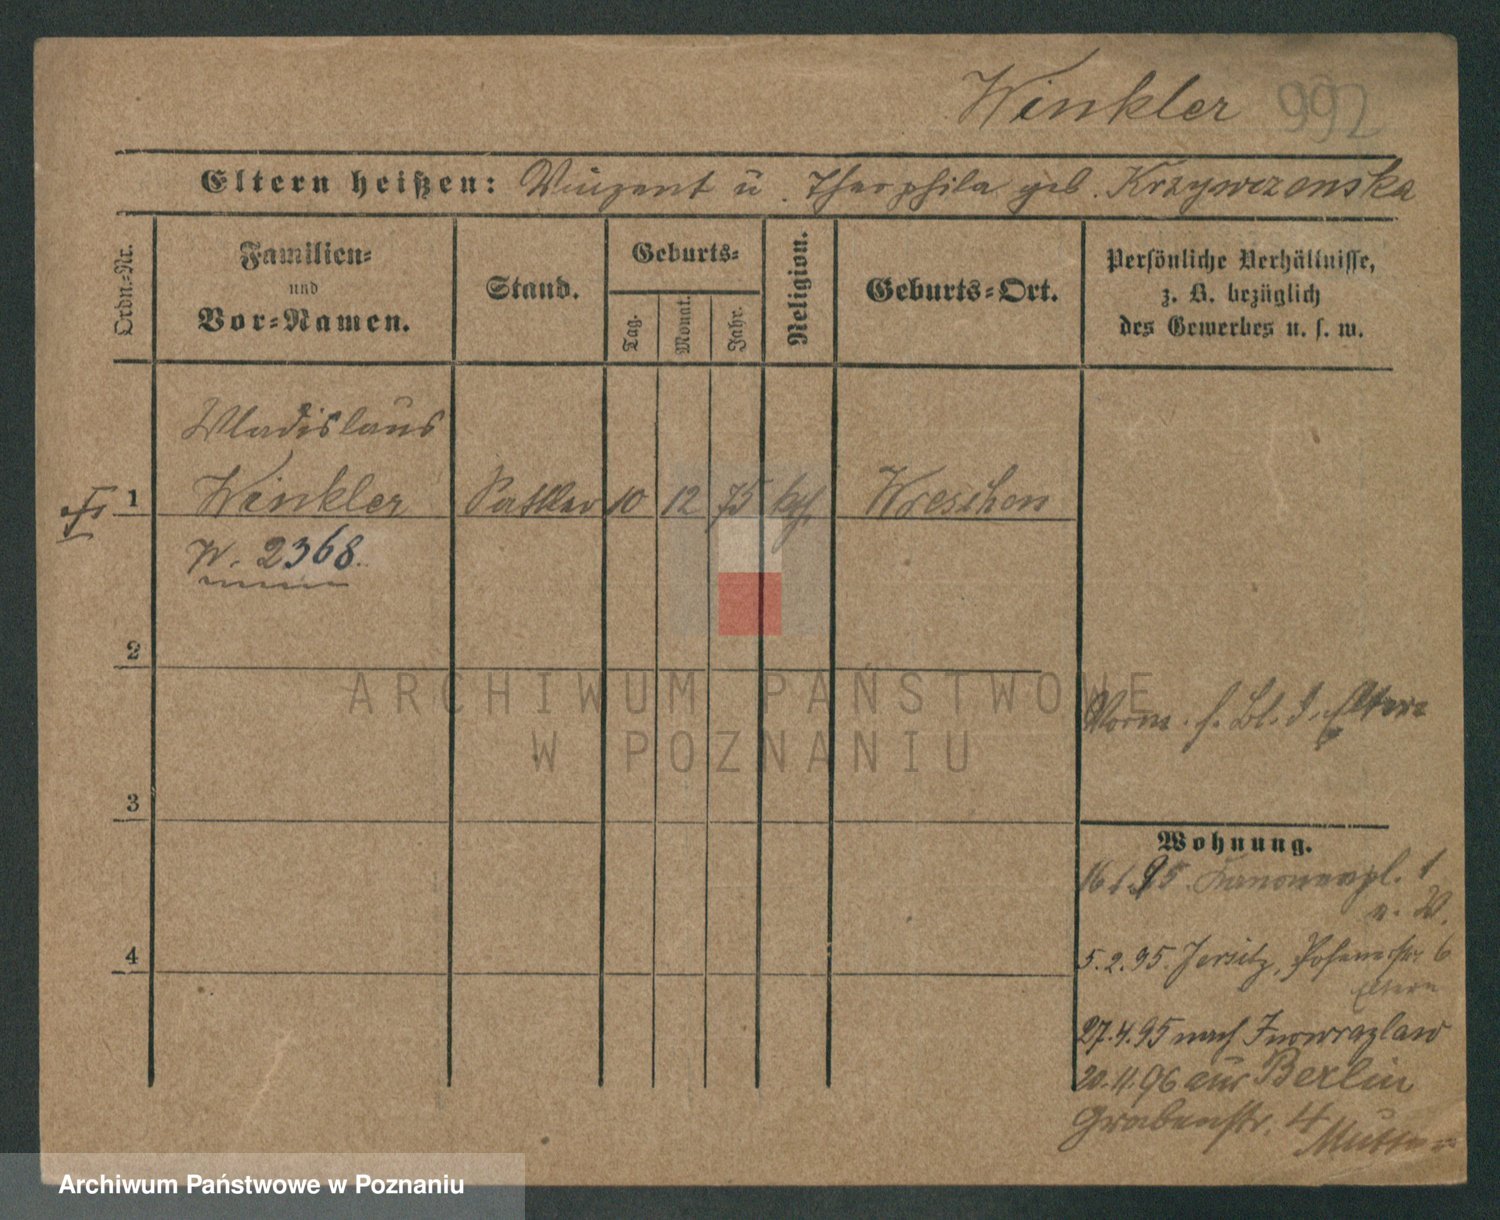 Winkler 992
Eltern heißen: Vinzent ü. Theophila geb. Krzywczonska
Ordn.-Nr.
Familien-
und
Vor-Namen.
Stand.
Geburts-
Tag.
Monat.
Jahr.
Religion.
Geburts-Ort.
Persönliche Verhältnisse,
z. B. bezüglich
des Gewerbes u. s. w.
Wladislaus
1 Winkler Sattler 10 12 75 kth. Wreschen
W. 2368.
2
ARCHIWUM PAŃSTWOWE
W POZNANIU
Vorm. s. Bl. d. Eltern
3
Wohnung.
16 1. 95. Kanonenpl. 1
5. 2. 95. Jersitz, Posenerstr. 6
Eltern
4
27. 4. 95 nach Inowrazlaw
20. 11. 96 aus Berlin
Grabenstr. 4
Mutter
Archiwum Państwowe w Poznaniu